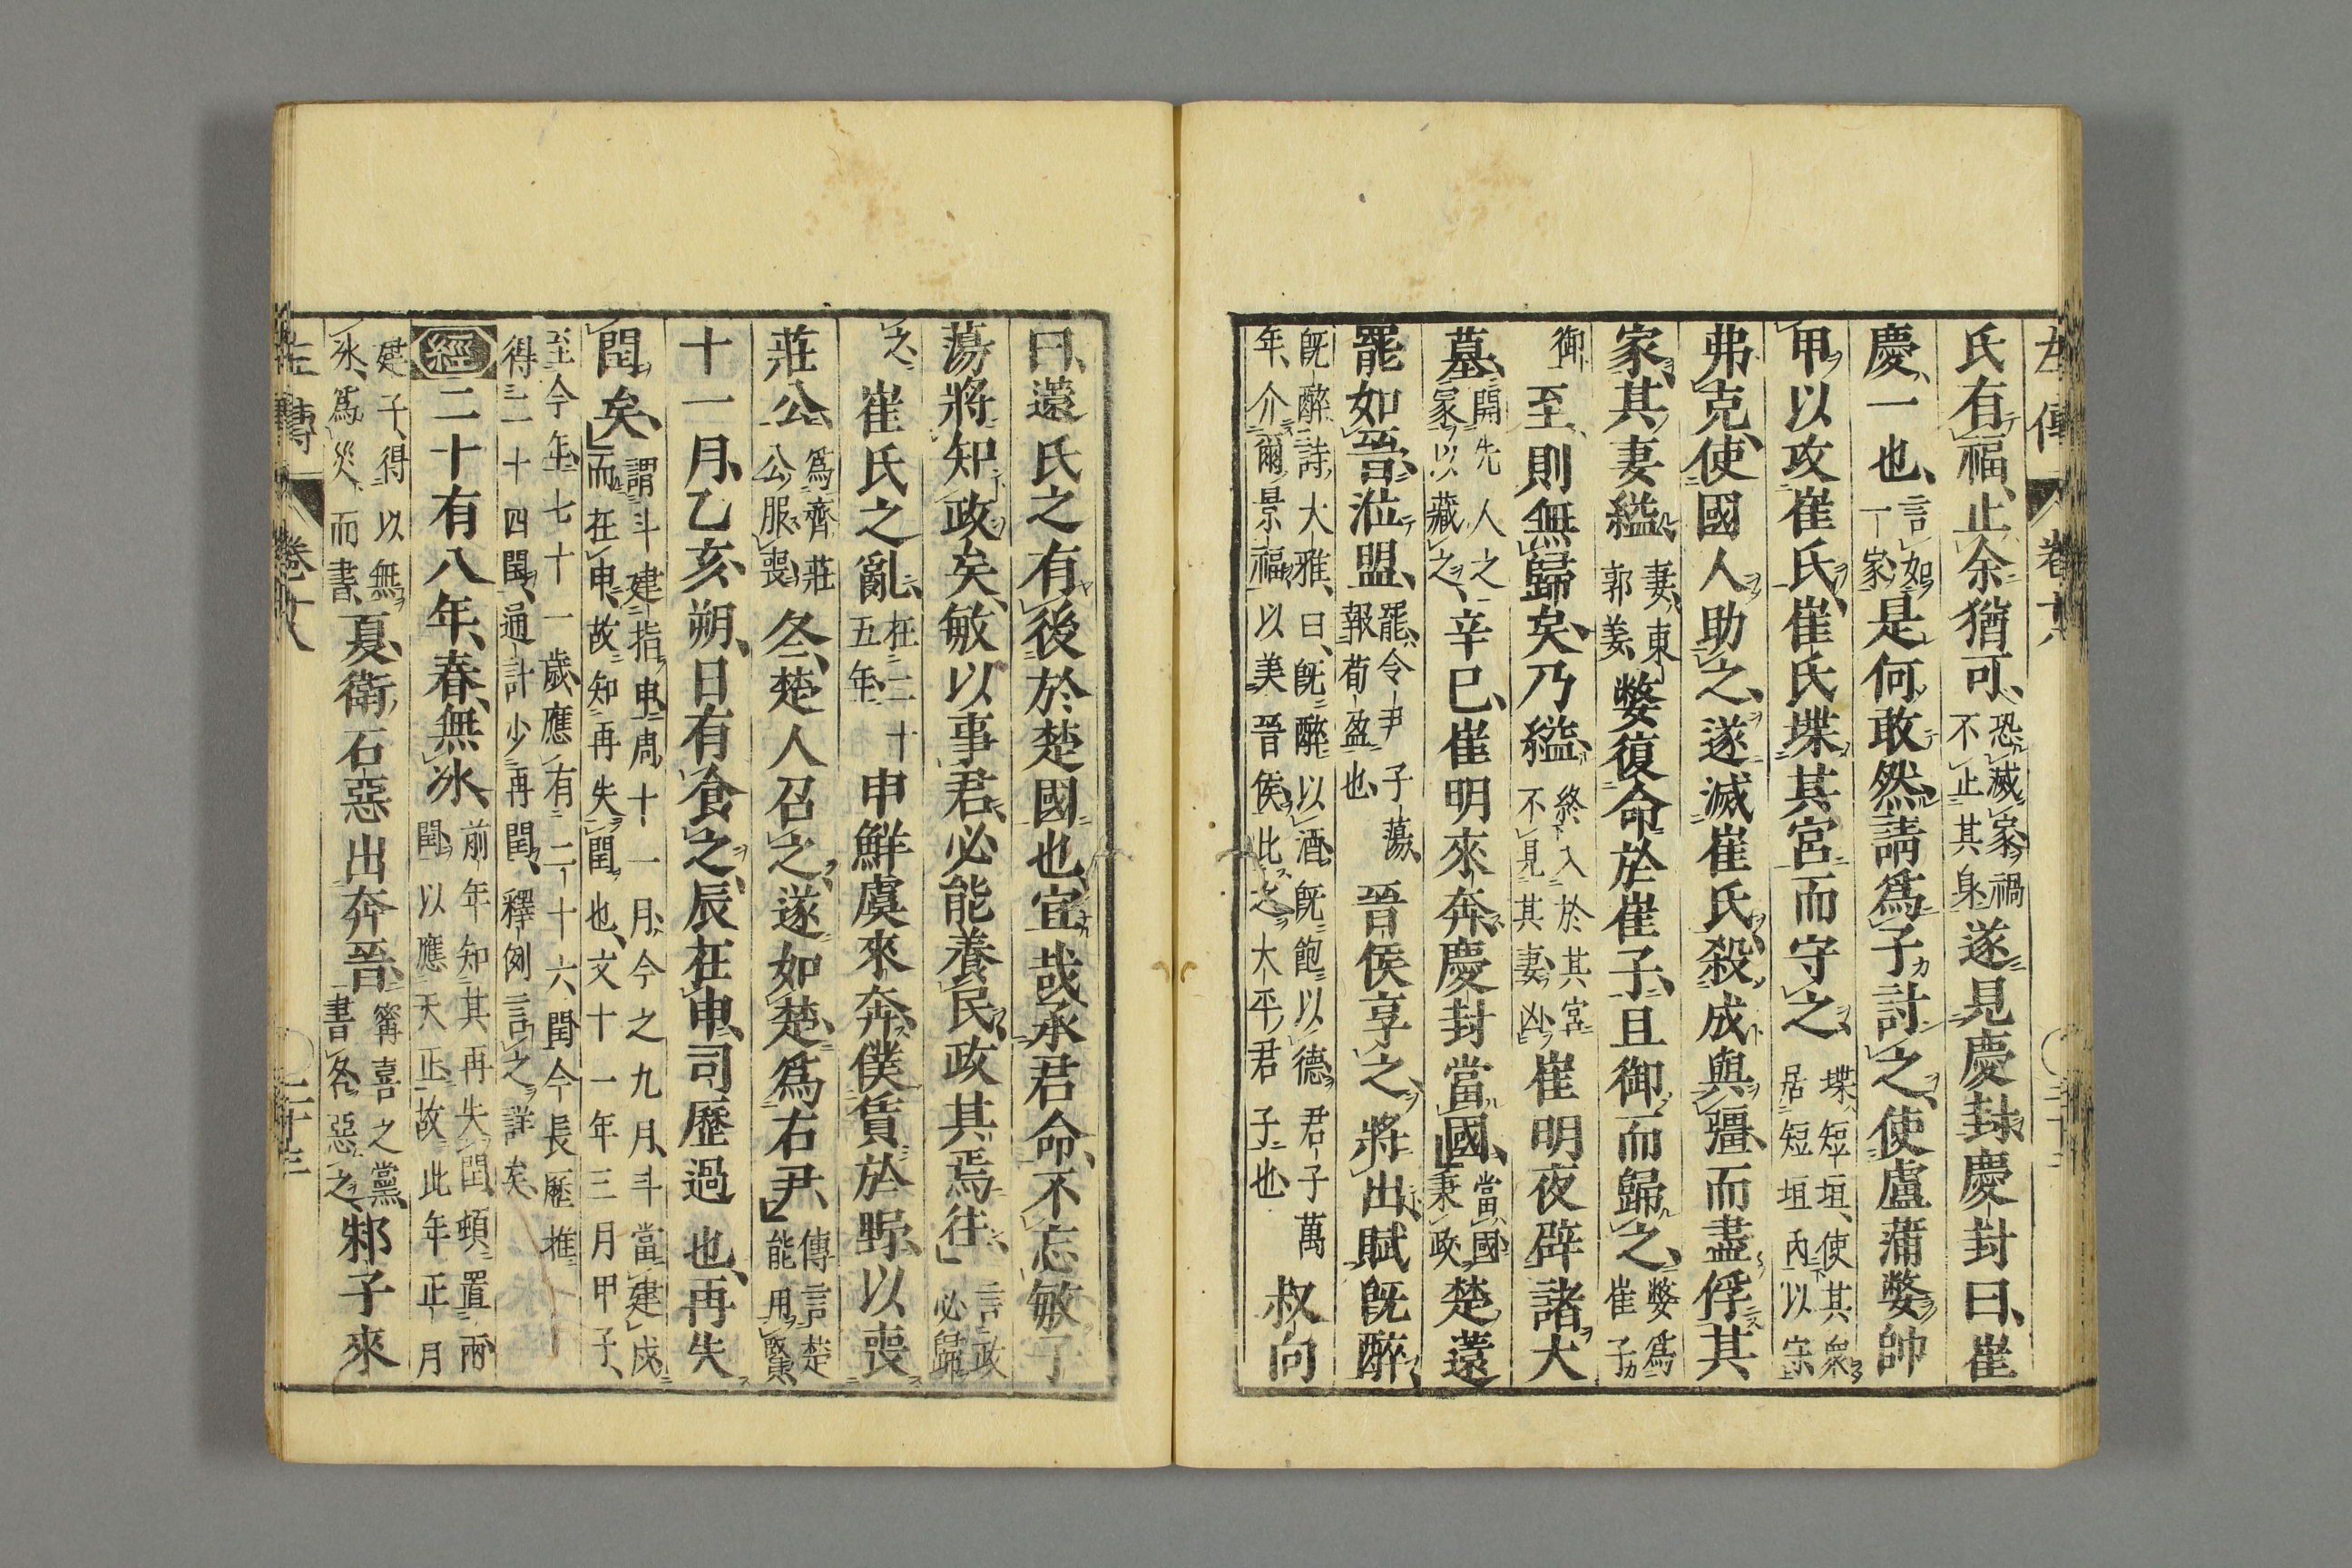 氏有福、止余猶可、恐滅家禍不止其身遂見慶封慶封曰、崔
慶、一也、言如一家是何敢然請爲子討之、使盧蒲嫳帥
甲以攻崔氏、崔氏堞其宮而守之、堞、短垣、使其衆居短垣內以守
弗克、使國人助之、遂滅崔氏、殺成與彊、而盡俘其
家、其妻縊妻、東郭姜、嫳復命於崔子、且御而歸之、嫳爲崔子
御至、則無歸矣、乃縊、終入於其宮不見其妻、凶崔明夜辟諸大
墓、開先人之冢以藏之、辛巳、崔明來奔、慶封當國、當國秉政楚薳
罷如晉、涖盟、罷、令尹子蕩、報荀盈也、晉侯享之、將出、賦既醉、
既醉詩大雅、曰、既醉以酒既飽以德君子萬年、介爾景福以美晉侯、比之大平君子也叔向
曰、薳氏之有後於楚國也、宜哉承君命、不忘敏子
蕩將知政矣、敏以事君、必能養民、政其焉往、言政必歸
之、崔氏之亂、在二十五年、申鮮虞來奔、僕賃於野、以喪
莊公、爲齊莊公服喪冬、楚人召之、遂如楚、爲右尹、傳言楚能用賢、
十一月、乙亥、朔、日有食之、辰在申、司歷過也、再失
閏矣、謂斗建指申周十一月、今之九月、斗當建戌而在申、故知再失閏也、文十一年三月甲子、
至今年、七十一歲、應有二十六閏今長歷推得二十四閏、通計少再閏、釋例言之詳矣、
經二十有八年、春、無冰、前年知其再失閏、頓置兩閏以應天正故此年正月
建子、得以無冰、爲災、而書、夏、衛石惡出奔晉、甯喜之黨、書名、惡之、邾子來
左傳 卷十八 二十三